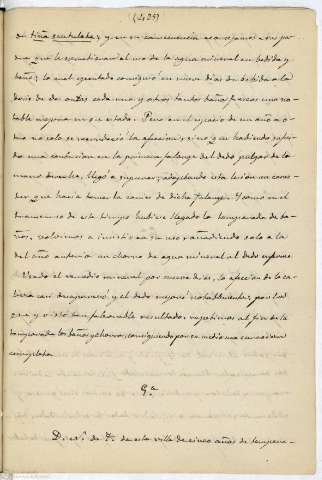 (425)
de tiña scutulata; y en su consecuencia aconsejamos a su pa-
dre que le sometiera al uso de la agua mineral en bebida y
baños; lo cual ejecutado consiguió en nueve dias de bebida a la
dosis de dos onzas cada uno y otros tantos baños frescos una no-
table mejoria en su estado. Pero en el espacio de un año a o-
tro no solo se reprodució la afeccion, si no q.e en habiendo sufri-
do una contusion en la primera falange del dedo pulgar de la
mano derecha, llegó a supurar, adquiriendo esta lesion un carac-
ter que hacia temer la caries de dicha falange. Y como en el
transcurso de este tiempo hubiese llegado la temporada de ba-
ños, volvimos a instituir su uso, añadiendo solo a la
del año anterior un chorro de agua mineral al dedo enfermo.
Usado el remedio mineral por nueve dias, la afeccion de la ca-
beza casi desapareció y el dedo mejoró notablemente, por lo
que y visto tan favorable resultado, repetimos al fin de la
temporada los baños y chorros, consiguiendo por ese medio una curacion
completa.
9.a
D.n de esta villa de cinco años de tempera-